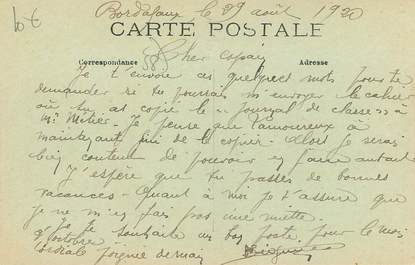 Bordeaux le 29 août 1920
10 €
CARTE POSTALE
Correspondance
Adresse
585
Cher copain
Je t'envoie ces quelques mots pour te
demander si tu pourrais m'envoyer le cahier
où tu as copié le "journal de classe" à
Mr Métier. Je pense que l'amoureux à
maintenant fini de le copier. Alors je serai
bien content de pouvoir en faire autant
J'espère que tu passes de bonnes
vacances. Quant à moi je t'assure que
je ne m'en fais pas une miette.
Je te souhaite un bon poste pour le mois
d'octobre
Cordiale poignée de main